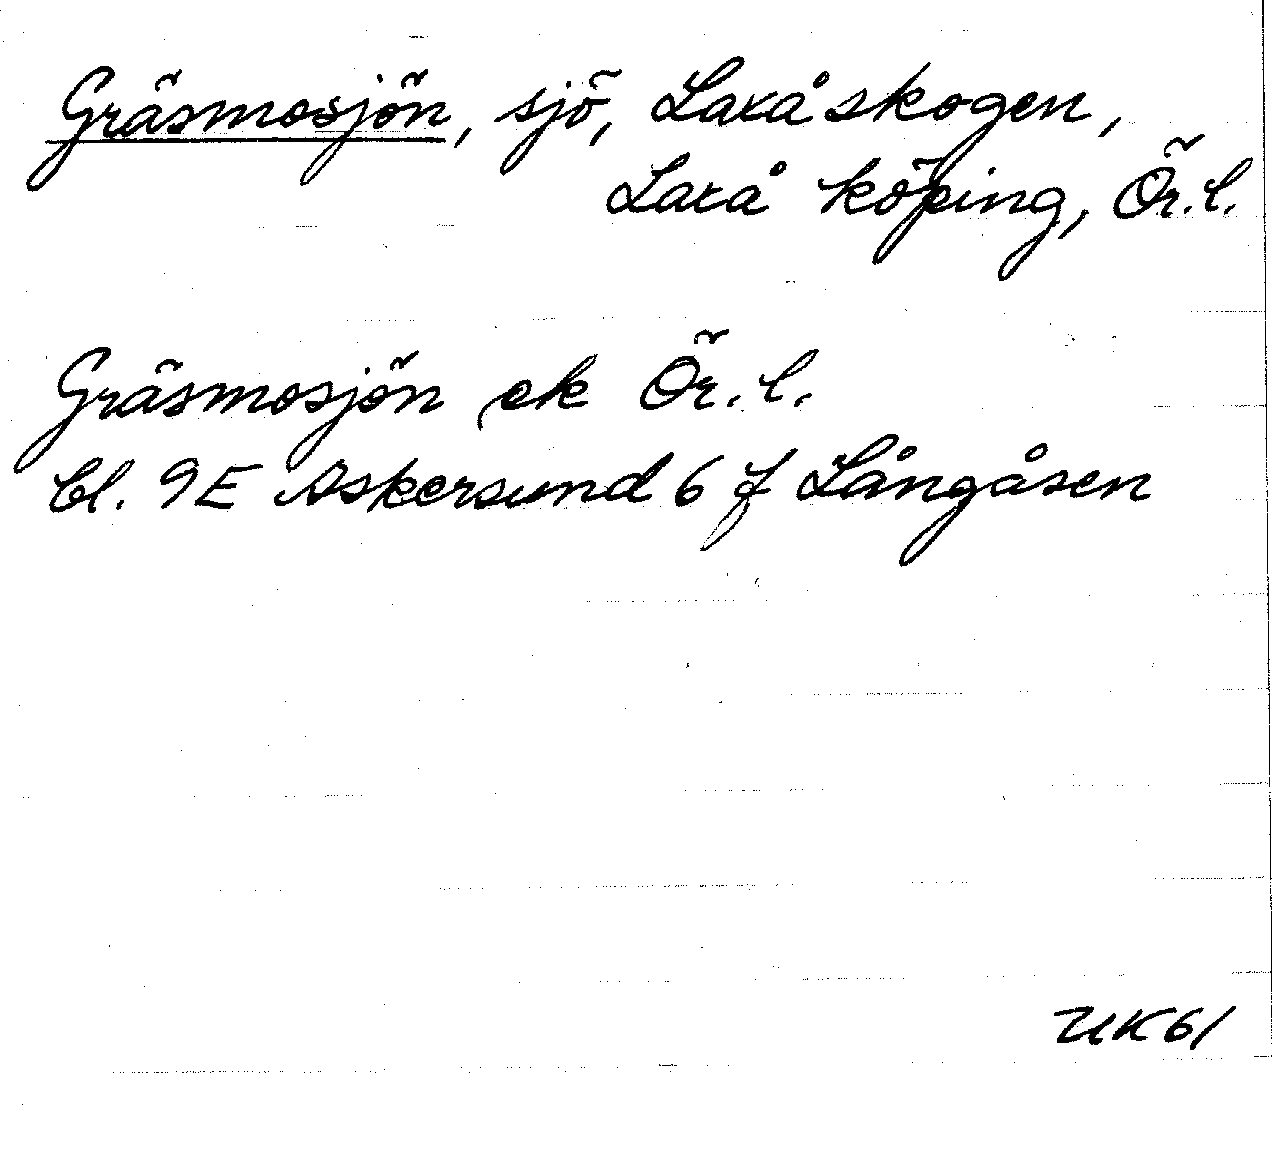 Gräsmosjön, sjö, Laxåskogen,
Laxå köping, Ör.l.
Gräsmosjön ek Ör.l.
bl. 9E Askersund 6 f Långåsen
UK61